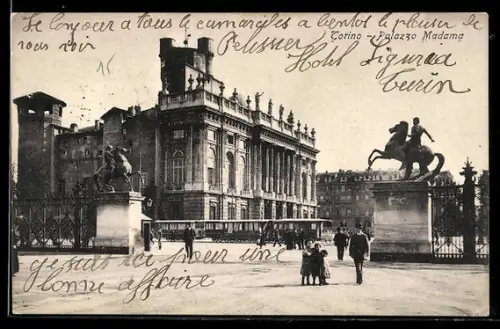 Je bonjour a tous le camarades a bientot le plaisir de
vous voir
Torino - Palazzo Madama
16
Pelissier
Hotel Ligurea
Turin
je suis ici pour une
bonne affaire